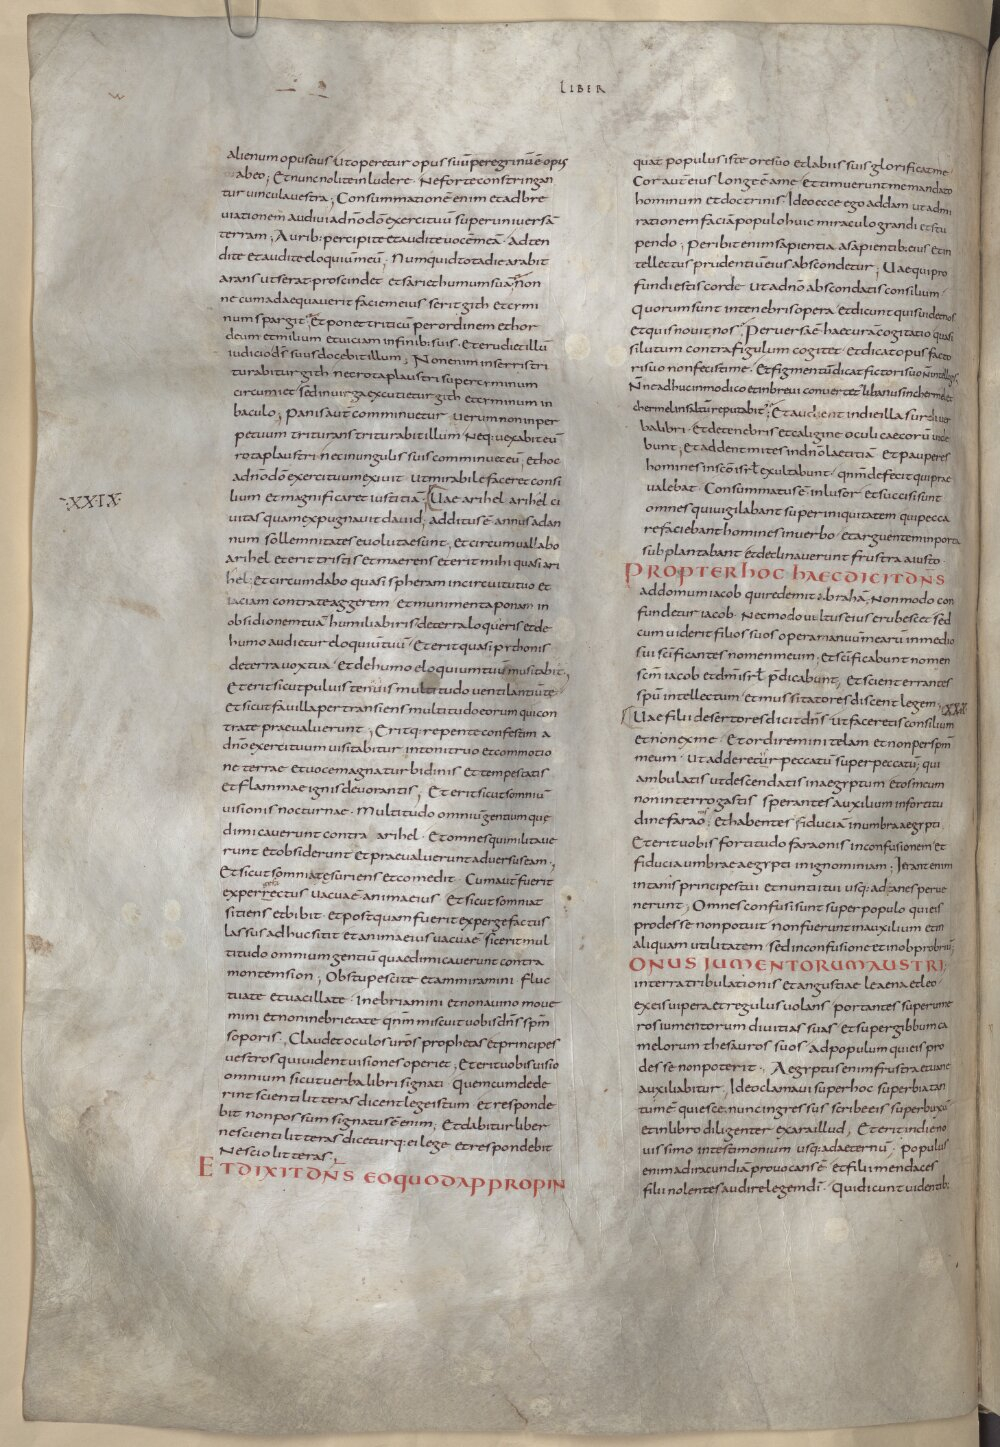 LIBER
alienum opus eius Ut operetur opus suū peregrinū ē opus
abeo ; Et nunc nolite inludere · Ne forte constringan
tur vincula vestra ; Consummationē enim et adbre
viationem audivi a dn̄o dō exercituū super universā
terram ; Aurib: percipite et audite vocē meā · Adten
dite et audite eloquiū meū ; Numquid tota die arabit
arans ut serat proscindet et sariet humum suā Non
ne cum adaequaverit faciem eius serit gith et cymi
num spargit Et ponet triticū per ordinem et hor
deum et milium et viciam in finib: suis · Et erudiet illū
iudicio ds̄ suus docebit illum ; Non enim in serris tri
turabitur gith nec rota plaustri super cyminum
circumiet sed in virga excutietur gith et cyminum in
baculo ; Panis aut̄ comminuetur verum non in per
petuum triturans triturabit illum Neq: vexabit eū
rota plaustri nec in ungulis suis comminuet eū ; et hoc
a dn̄o dō exercituum exivit ut mirabile faceret consi
lium et magnificaret iustitiā Uae arihel arihel ci
XXIX
vitas quam expugnavit david ; additus ē annus ad an
num sollemnitates evolutae sunt ; et circumvallabo
arihel et erit tristis et maerens et erit mihi quasi ari
hel ; et circumdabo quasi spheram in circuitu tuo et
iaciam contra te aggerem et munimenta ponam in
obsidionem tuā humiliaberis de terra loqueris et de
humo audietur eloquiū tuū · Et erit quasi pythonis
de terra vox tua Et de humo eloquium tuū musitabit ;
Et erit sicut pulvis tenuis multitudo ventilantiū te
et sicut favilla pertransiens multitudo eorum qui con
tra te praevaluerunt ; Eritq: repente confestim a
dn̄o exercituum visitabitur in tonitruo et commotio
ne terrae et voce magna turbidinis et tempestatis
et flammae ignis devorantis ; Et erit sicut somniū
visionis nocturnae · Multitudo omniū gentium que
dimicaverunt contra arihel · Et omnes qui militave
runt et obsiderunt et praevaluerunt adversus eam ;
Et sicut somniat esuriens et comedit · Cum aut̄ fuerit
experrectus vacua ē anima eius Et sicut somniat
sitiens et bibit et postquam fuerit expergefactus
lassus adhuc sitit et anima eius vacua ē sic erit mul
titudo omnium gentiū quae dimicaverunt contra
montem sion ; Obstupescite et ammiramini fluc
tuate et vacillate · Inebriamini et non a vino move
mini et non in ebrietate qn̄m miscuit vobis dn̄s spm̄
soporis ; Claudet oculos vr̄os prophetas et principes
vestros qui vident visiones operiet ; Et erit vobis visio
omnium sicut verba libri signati Quem cum dede
rint scienti litteras dicent lege istum et responde
bit non possum signatus ē enim ; Et dabitur liber
nescienti litteras diceturq: ei lege et respondebit
Nescio litteras ;
ET DIXIT DN̄S EO QUOD APPROPIN
quat populus iste ore suo et labiis suis glorificat me
Cor aut̄ eius longe ē a me Et timuerunt me mandato
hominum et doctrinis Ideo ecce ego addam ut admi
rationem faciā populo huic miraculo grandi et stu
pendo ; Peribit enim sapientia a sapientib: eius et in
tellectus prudentiū eius abscondetur ; Uae qui pro
fundi estis corde ut a dn̄o abscondatis consilium
Quorum sunt in tenebris opera et dicunt quis videt nos
et quis novit nos Perversa ē haec vr̄a cogitatio quasi
si lutum contra figulum cogitet Et dicat opus facto
ri suo non fecisti me · Et figmentū dicat fictori suo non intellegis
Nn̄e adhuc in modico et in brevi convertet libanus in chermel et
chermel in saltū reputabit ; Et audient in die illa surdi ver
ba libri · Et de tenebris et caligine oculi caecorū vide
bunt ; Et addent mites in dn̄o laetitiā Et pauperes
homines in scō isrl̄ exultabunt · qn̄m defecit qui prae
valebat Consummatus ē inlusor et succisi sunt
omnes qui vigilabant super iniquitatem qui pecca
re faciebant homines in verbo et arguentem in porta
subplantabant et declinaverunt frustra a iusto ·
PROPTER HOC HAEC DICIT DN̄S
ad domum iacob qui redemit abrahā Non modo con
fundetur iacob Nec modo vultus eius erubescet sed
cum viderit filios suos opera manuū mearū in medio
sui sc̄ificantes nomen meum ; et sc̄ificabunt nomen
sc̄m iacob et dm̄ isrl̄ p̄dicabunt ; Et scient errantes
spū intellectum et mussitatores discent legem ;
XXX
Uae filii desertores dicit dn̄s ut faceretis consilium
et non ex me Et ordiremini telam et non per spm̄
meum ut adderetur peccatū super peccatū ; qui
ambulatis ut descendatis in aegyptum et os meum
non interrogastis sperantes auxilium in fortitu
dine farao ; Et habentes fiduciā in umbra aegypti
Et erit vobis fortitudo faraonis in confusionem et
fiducia umbrae aegypti in ignominiam ; Ierant enim
in tanis principes tui et nuntii tui usq: ad anes perve
nerunt ; Omnes confusi sunt super populo qui eis
prodesse non potuit non fuerunt in auxilium et in
aliquam utilitatem sed in confusione et in obprobriū ;
ONUS JUMENTORUM AUSTRI ;
in terra tribulationis et angustiae leaena et leo
ex eis vipera et regulus volans portantes super ume
ros iumentorum divitias suas et super gibbum ca
melorum thesauros suos Ad populum qui eis pro
desse non poterit · Aegyptus enim frustra et vane
auxiliabitur Ideo clamavi super hoc superbia tan
tum ē quiesce nunc ingressus scribe eis super buxū
et in libro diligenter exara illud ; Et erit in die no
vissimo in testimonium usq: ad aeternū · Populus
enim ad iracundiā provocans ē et filii mendaces
filii nolentes audire legem dī · Qui dicunt videntib: